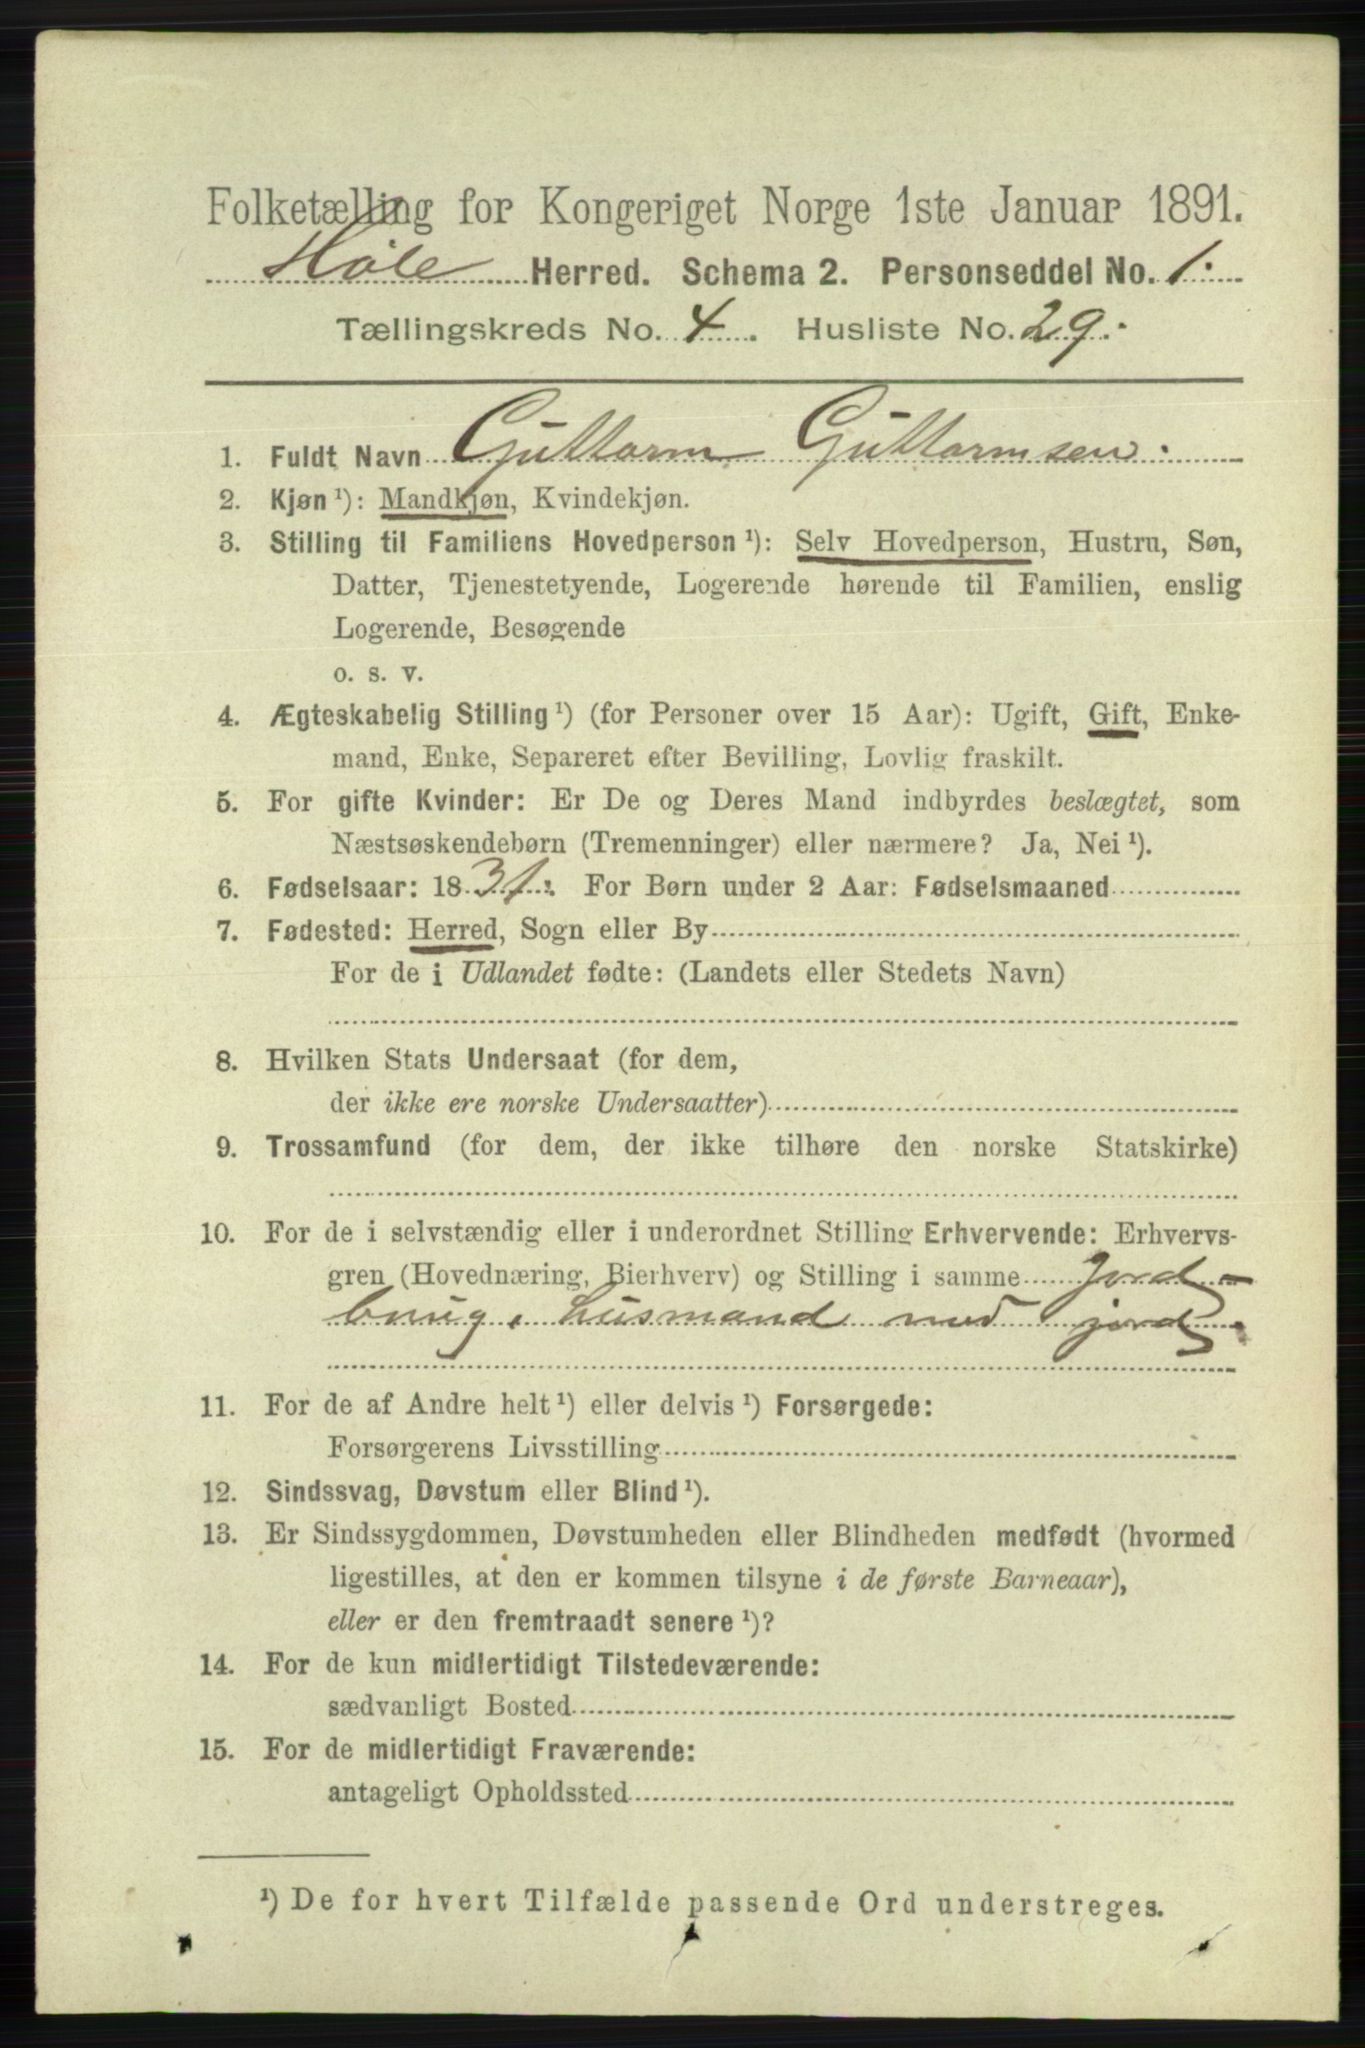 Folketælling for Kongeriget Norge 1ste Januar 1891.
Høle Herred. Schema 2. Personseddel No. 1.
Tællingskreds No. 4. Husliste No. 29.
1. Fuldt Navn Guttorm Guttormsen.
2. Kjøn ¹): Mandkjøn, Kvindekjøn.
3. Stilling til Familiens Hovedperson ¹): Selv Hovedperson, Hustru, Søn,
Datter, Tjenestetyende, Logerende hørende til Familien, enslig
Logerende, Besøgende
o. s. v.
4. Ægteskabelig Stilling ¹) (for Personer over 15 Aar): Ugift, Gift, Enke-
mand, Enke, Separeret efter Bevilling, Lovlig fraskilt.
5. For gifte Kvinder: Er De og Deres Mand indbyrdes beslægtet, som
Næstsøskendebørn (Tremenninger) eller nærmere? Ja, Nei ¹).
6. Fødselsaar: 1831. For Børn under 2 Aar: Fødselsmaaned
7. Fødested: Herred, Sogn eller By
For de i Udlandet fødte: (Landets eller Stedets Navn)
8. Hvilken Stats Undersaat (for dem,
der ikke ere norske Undersaatter)
9. Trossamfund (for dem, der ikke tilhøre den norske Statskirke)
10. For de i selvstændig eller i underordnet Stilling Erhvervende: Erhvervs-
gren (Hovednæring, Bierhverv) og Stilling i samme Jord-
brug, husmand med jord.
11. For de af Andre helt ¹) eller delvis ¹) Forsørgede:
Forsørgerens Livsstilling
12. Sindssvag, Døvstum eller Blind ¹).
13. Er Sindssygdommen, Døvstumheden eller Blindheden medfødt (hvormed
ligestilles, at den er kommen tilsyne i de første Barneaar),
eller er den fremtraadt senere ¹)?
14. For de kun midlertidigt Tilstedeværende:
sædvanligt Bosted
15. For de midlertidigt Fraværende:
antageligt Opholdssted
¹) De for hvert Tilfælde passende Ord understreges.